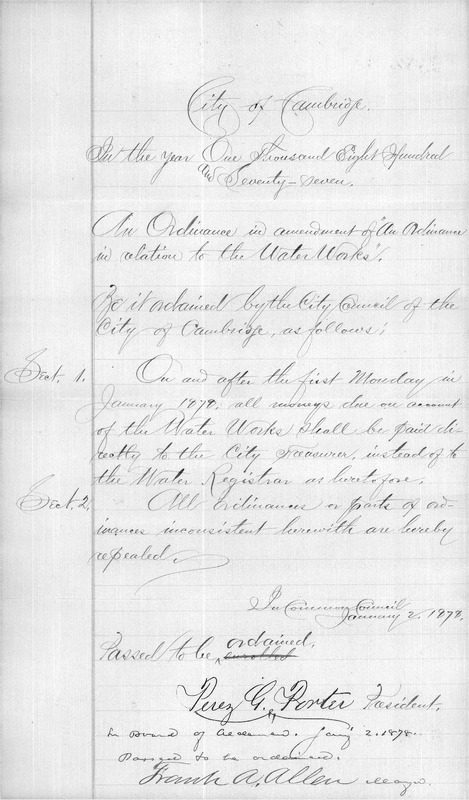 City of Cambridge.
In the year One Thousand Eight Hundred
and Seventy-seven.
An Ordinance in amendment of "An Ordinance
in relation to the Water Works".
Be it ordained by the City Council of the
City of Cambridge, as follows:
Sect. 1. On and after the first Monday in
January 1878, all moneys due on account
of the Water Works shall be paid di-
rectly to the City Treasurer, instead of to
the Water Registrar as heretofore.
Sect. 2. All ordinances or parts of ord-
inances inconsistent herewith are hereby
repealed
In Common Council
January 2, 1878.
Passed to be enrolled ordained,
Perez G. Porter President.
In Board of Aldermen. Jany 2. 1878.
Passed to be ordained.
Frank A. Allen Mayor.